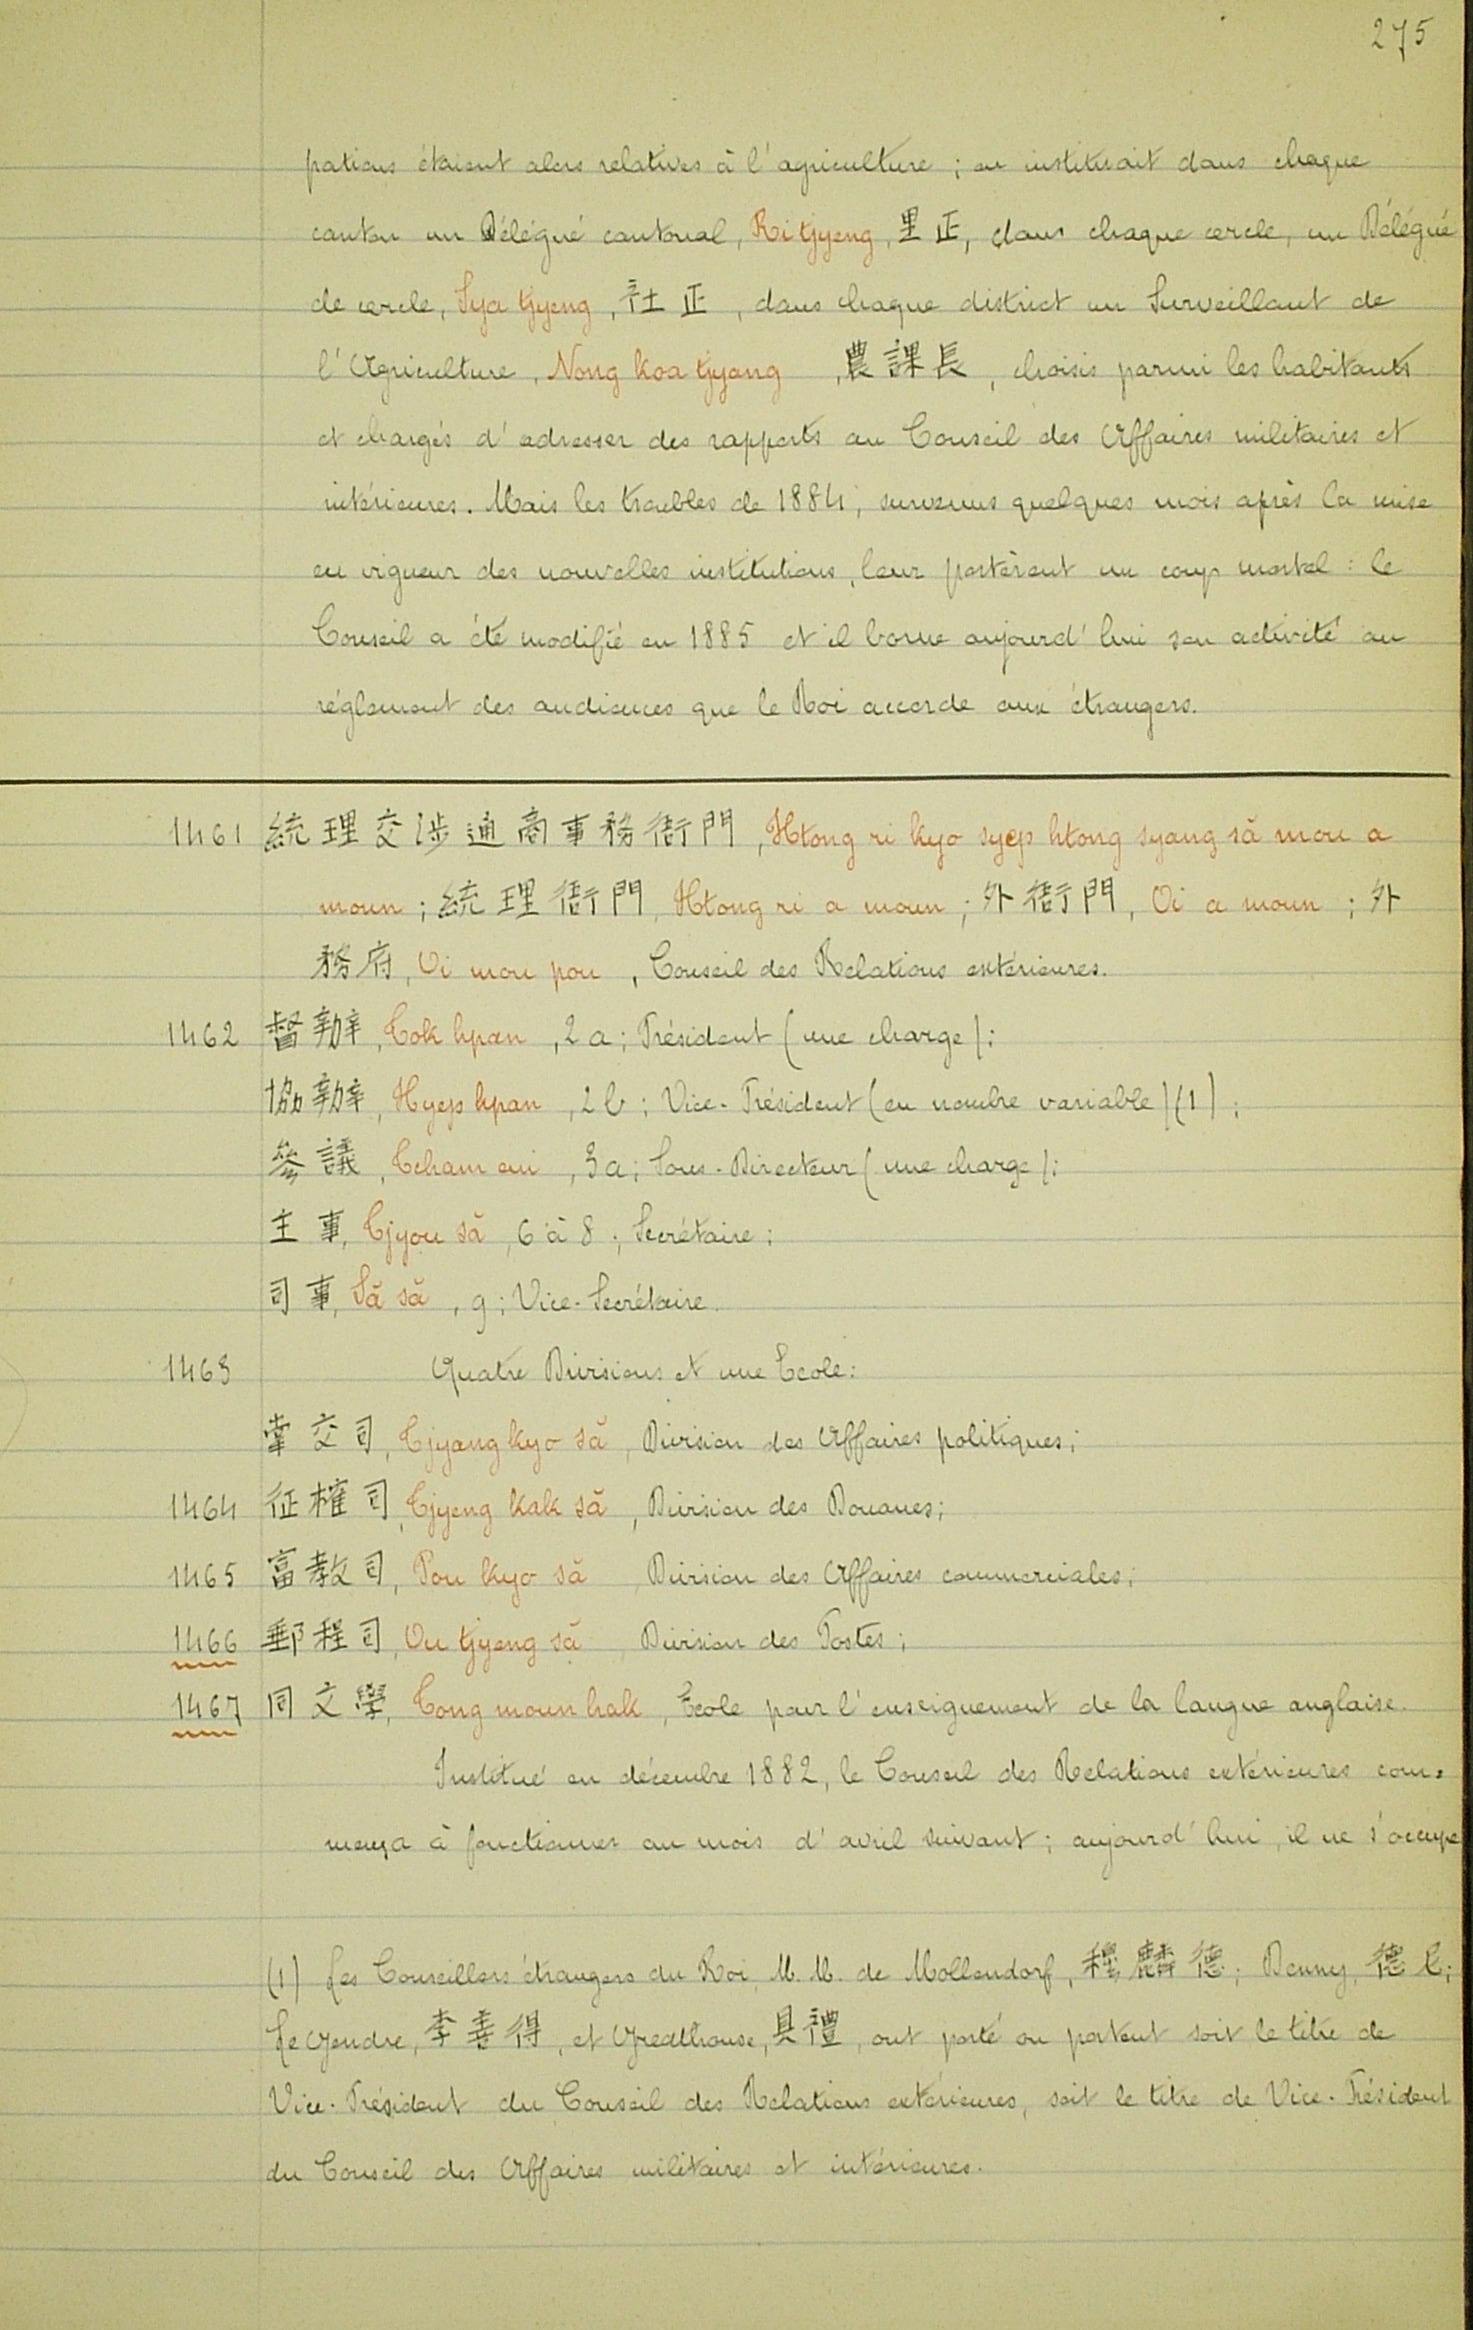 275
pations étaient alors relatives à l'agriculture ; on instituait dans chaque
canton un Délégué cantonal, Ri tjyeng, 里正, dans chaque cercle, un Délégué
de cercle, Sya tjyeng, 社正, dans chaque district un Surveillant de
l'Agriculture, Nong koa tjyang, 農課長, choisis parmi les habitants
et chargés d'adresser des rapports au Conseil des Affaires militaires et
intérieures. Mais les troubles de 1884, survenus quelques mois après la mise
en vigueur des nouvelles institutions, leur portèrent un coup mortel : le
Conseil a été modifié en 1885 et il borne aujourd'hui son activité au
réglement des audiences que le Roi accorde aux étrangers.
1461 統理交涉通商事務衙門, Htong ri kyo syep htong syang să mou a
moun ; 統理衙門, Htong ri a moun ; 外衙門, Oi a moun ; 外
務府, Oi mou pou, Conseil des Relations extérieures.
1462 督辦, Tok hpan, 2a ; Président (une charge) ;
協辦, Hyep hpan, 2b ; Vice-Président (en nombre variable) (1) ;
參議, Tcham eui, 3a ; Sous-Directeur (une charge) ;
主事, Tjyou să, 6 à 8 ; Secrétaire ;
司事, Să să, 9 ; Vice-Secrétaire.
1463 Quatre Divisions et une Ecole :
掌交司, Tjyang kyo să, Division des Affaires politiques ;
1464 征榷司, Tjyeng kak să, Division des Douanes ;
1465 富教司, Pou kyo să, Division des Affaires commerciales ;
1466 郵程司, Ou tjyeng să, Division des Postes ;
1467 同文學, Tong moun hak, École pour l'enseignement de la langue anglaise.
Institué en décembre 1882, le Conseil des Relations extérieures com=
mença à fonctionner au mois d'avril suivant ; aujourd'hui, il ne s'occupe
(1) Les Conseillers étrangers du Roi, M.M. de Mollendorf, 穆麟德 ; Denny, 德尼 ;
Le Gendre, 李善得, et Greathouse, 具禮, ont porté ou portent soit le titre de
Vice-Président du Conseil des Relations extérieures, soit le titre de Vice-Président
du Conseil des Affaires militaires et intérieures.